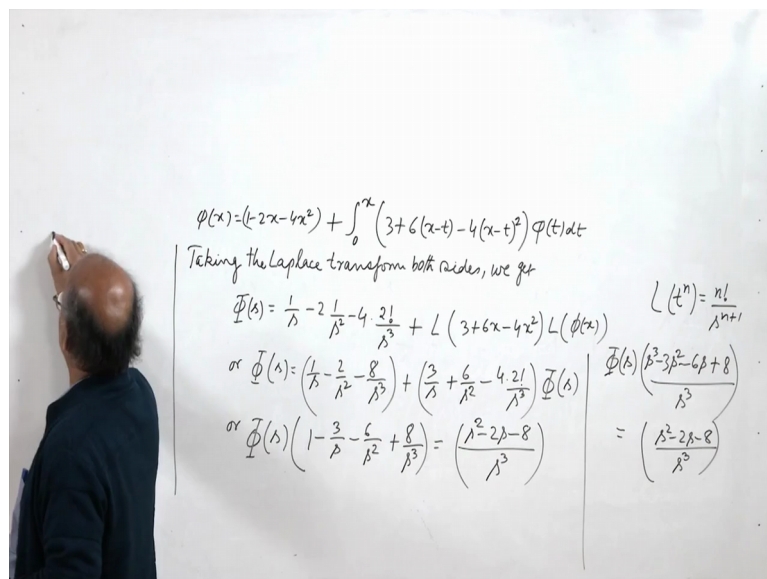 φ(x)=(1-2x-4x²)+∫₀ˣ(3+6(x-t)-4(x-t)²)φ(t)dt
Taking the Laplace transform both sides, we get
Φ(s)=1/s-2 1/s²-4·2!/s³+L(3+6x-4x²)L(φ(x))
or Φ(s)=(1/s-2/s²-8/s³)+(3/s+6/s²-4·2!/s³)Φ(s)
or Φ(s)(1-3/s-6/s²+8/s³)=((s²-2s-8)/s³)
L(tⁿ)=n!/sⁿ⁺¹
Φ(s)((s³-3s²-6s+8)/s³)
=((s²-2s-8)/s³)